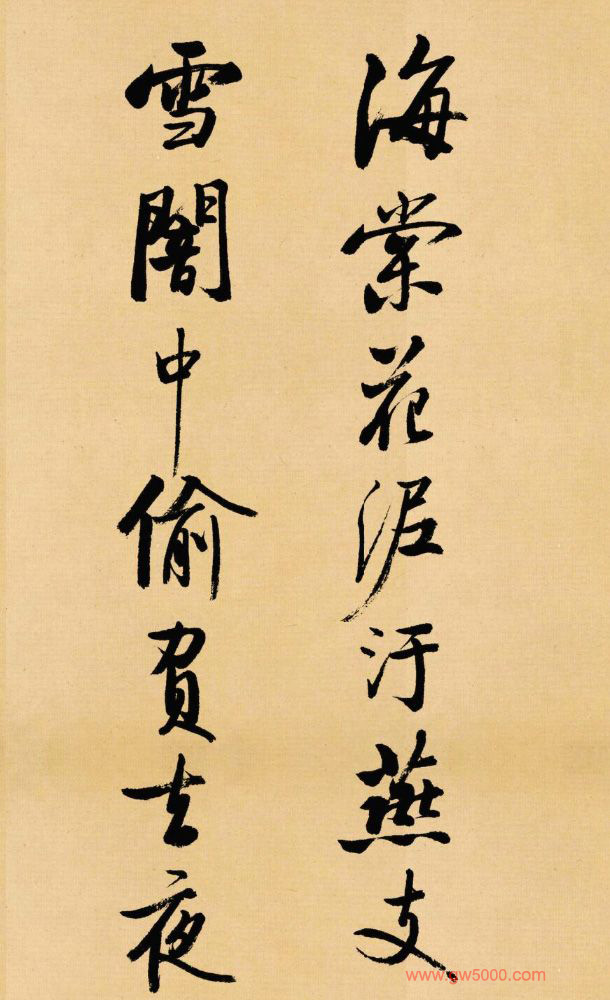 海棠花泥汙燕支
雪闇中偷負去夜
www.gw5000.com